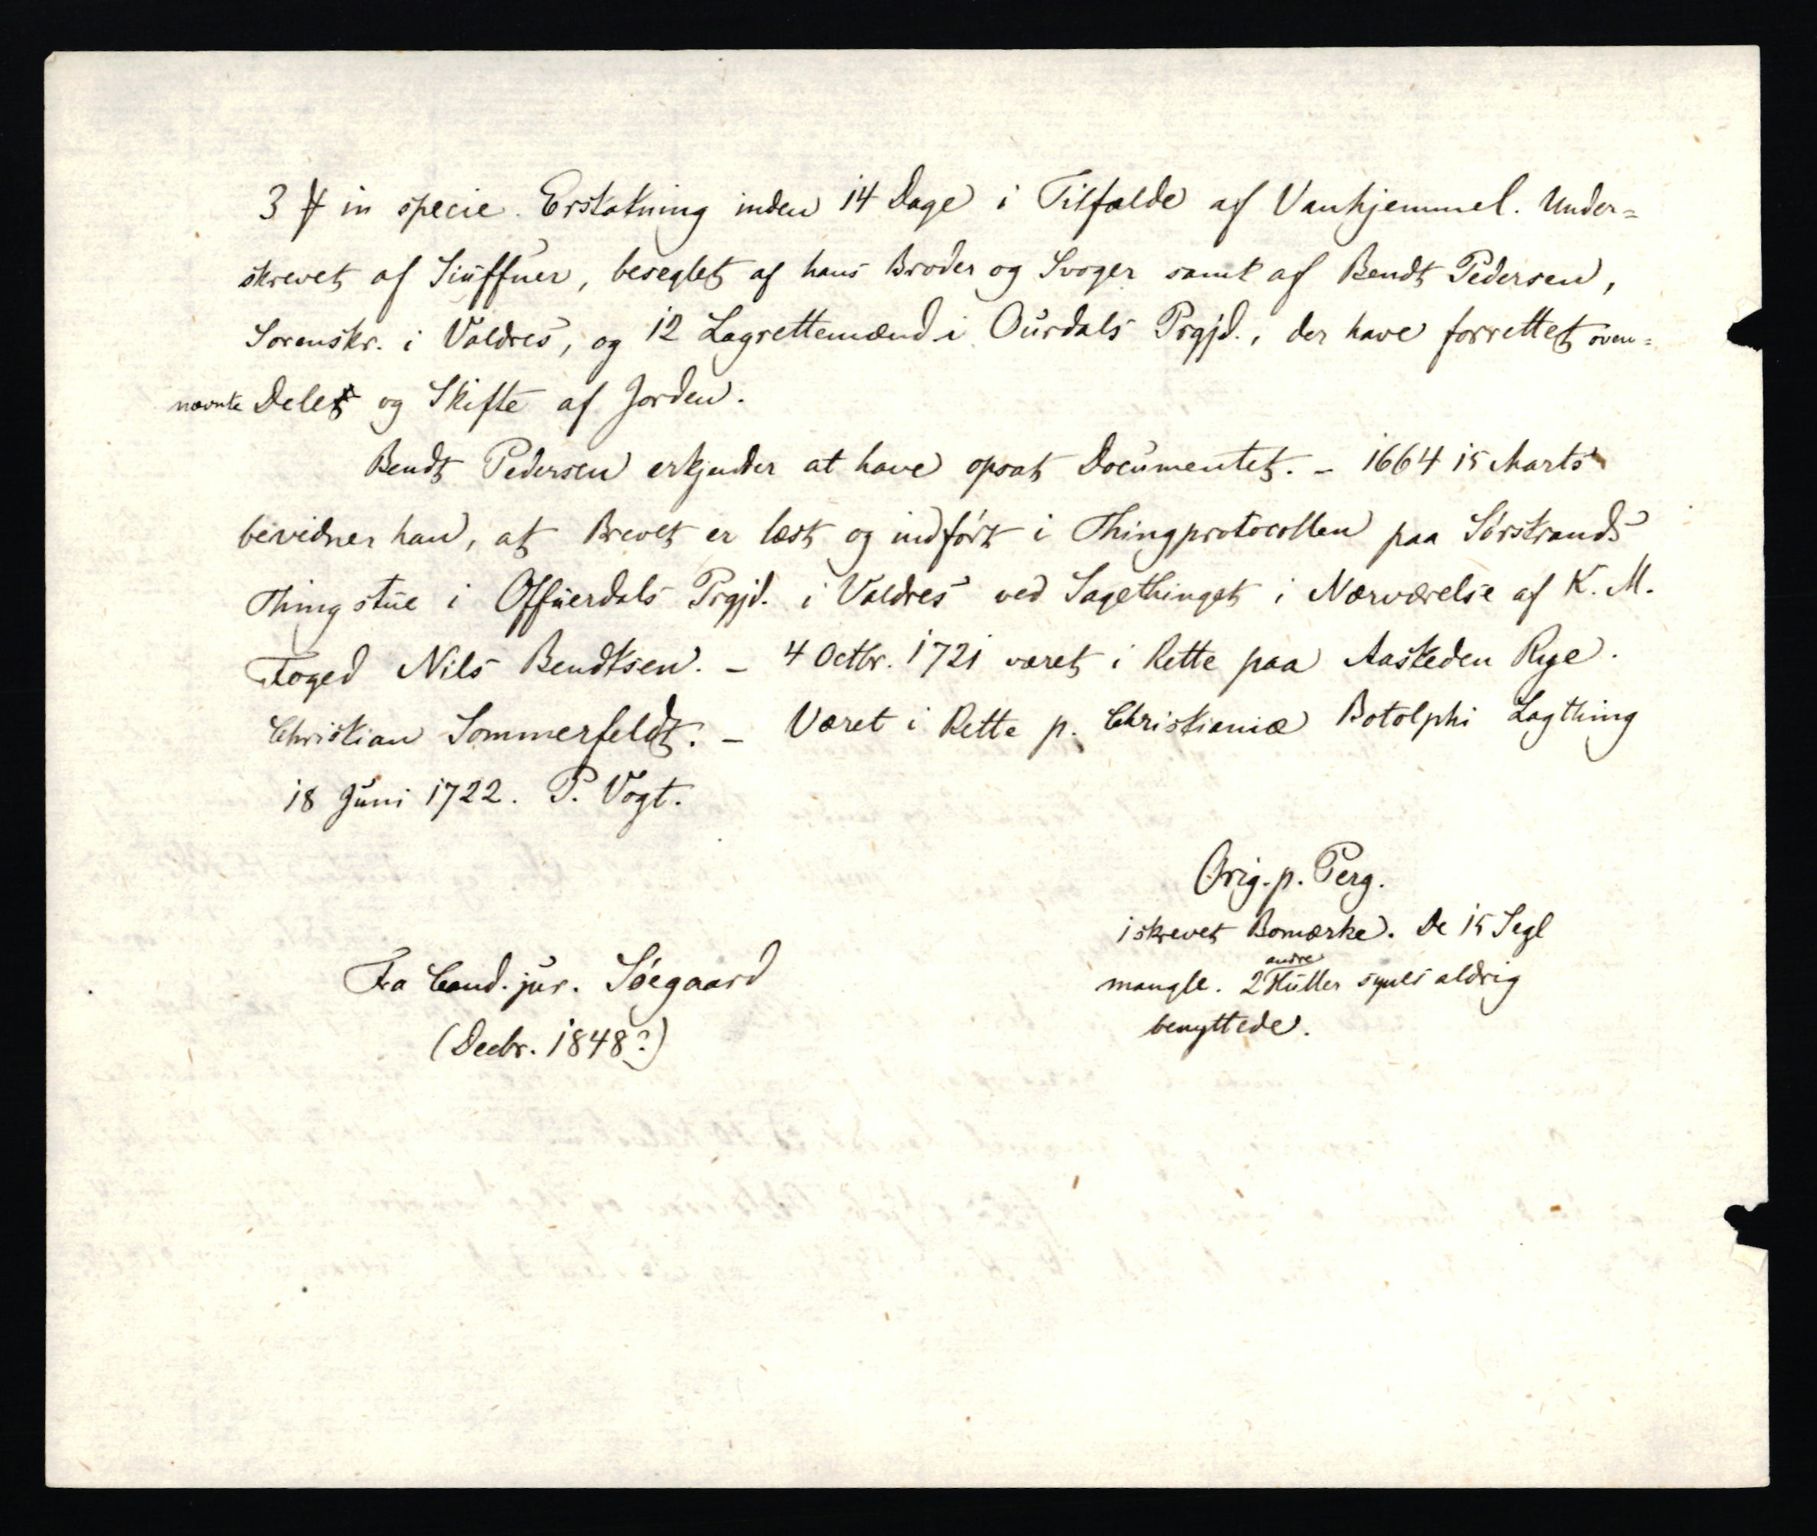 3 ₰ in specie. Erstatning inden 14 Dage i Tilfælde af Vanhjemmel. Under=
skrevet af Siuffuer, beseglet af hans Broder og Svoger samt af Bendt Pedersen,
Sorenskr. i Valdres, og 12 Lagrettemænd i Ourdals Prgjd., der have forrettet oven=
nævnte Delet og Skifte af Jorden.
Bendt Pedersen erkjender at have opsat Documentet. – 1664 15 Marts
bevidner han, at Brevet er læst og indført i Thingprotocollen paa Sørstrands
Thingstue i Offuerdals Prgjd. i Valdres ved Sagethinget i Nærværelse af K. M.
Foged Nils Bendtsen. – 4 Octbr. 1721 været i Rette paa Aasteden Rye.
Christian Sommerfeldt. – Været i Rette p. Christianiæ Botolphi Lagthing
18 Juni 1722. P. Vogt.
Orig. p. Perg.
1 skrevet Bomærke. De 15 Segl
mangle. 2 andre Huller synes aldrig
benyttede.
Fra Cand. jur. Søegaard
(Decbr. 1848?)